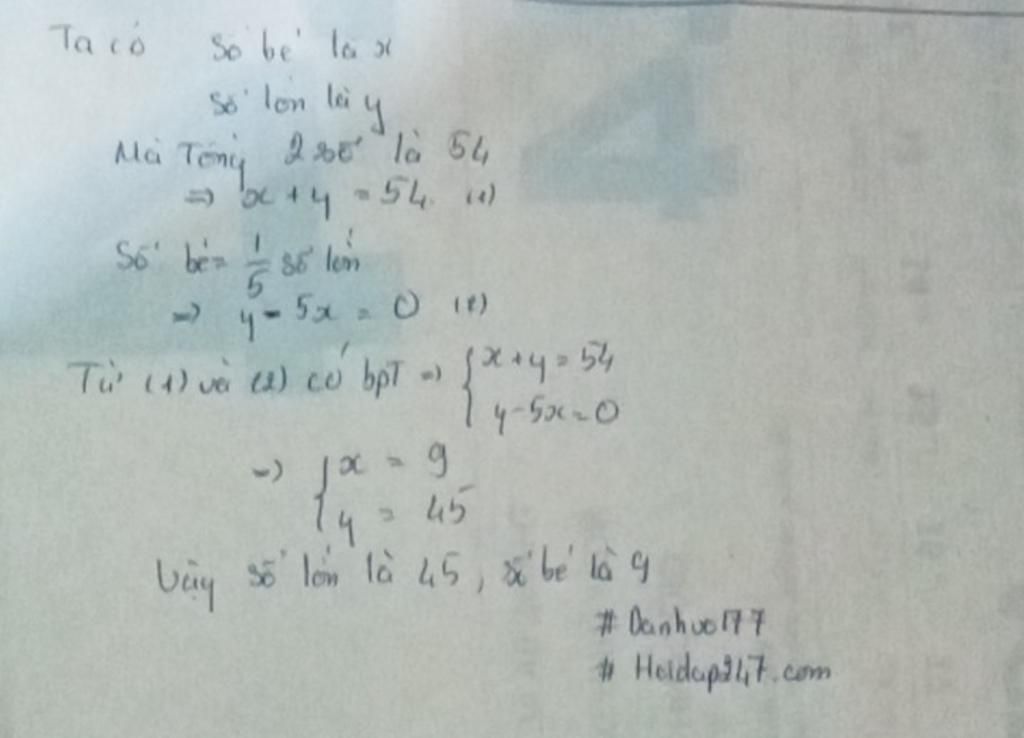 Ta có số bé là x
số lớn là y
Mà Tổng 2 số là 54
=> x + y = 54 (1)
Số bé = 1/5 số lớn
=> y - 5x = 0 (2)
Từ (1) và (2) có hpT => { x + y = 54
y - 5x = 0
=> { x = 9
y = 45
Vậy số lớn là 45, số bé là 9
# Danhvo177
# Hoidap247.com